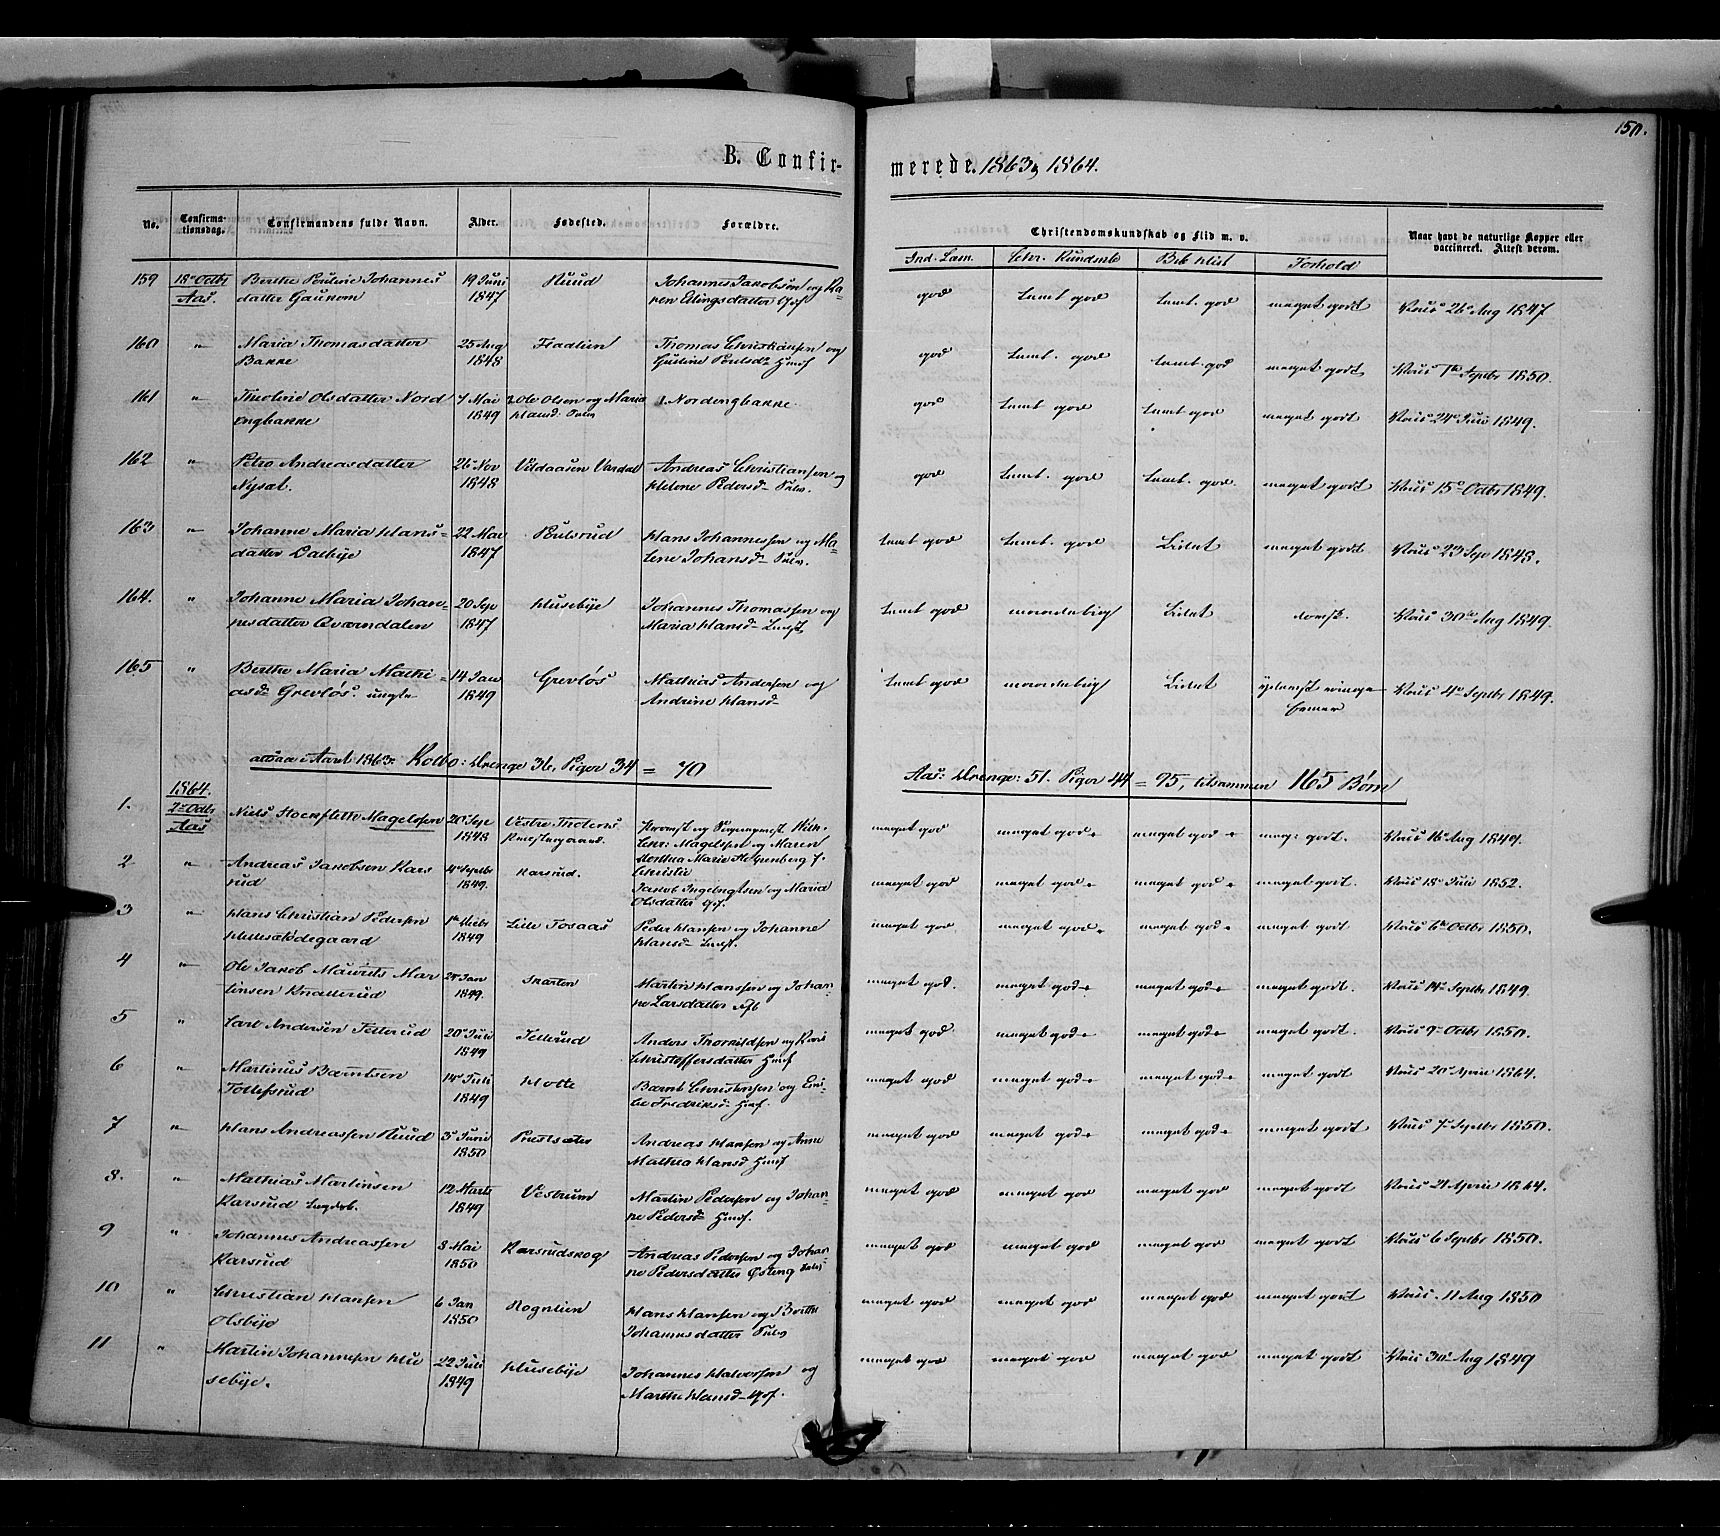 150.
B. Confirmerede. 1863 og 1864.
No. | Confirmationsdag. | Confirmandens fulde Navn. | Alder. | Fødested. | Forældre. | Christendomskundskab og Flid m. v. | Naar havt de naturlige Kopper eller vaccineret. Attest derom.
Ind. Læsn. | Chr. Kundsk | Bib Hist | Forhold
159 | 18de Octbr Aas. | Berthe Pouline Johannesdatter Gaukom | 19 Juni 1847 | Ruud | Johannes Jakobsen og Karen Erlingsdatter Gjøf | god | Temt. god | Temt. god | meget godt | Vacs 26de Aug 1847
160 | " | Maria Thomasdatter Bakke | 25 Aug 1848 | Fladlien | Thomas Christiansen og Gustine Poulsdr Husf | god | Temt. god | Temt. god | meget godt | Vacs 7de Septbr 1850.
161 | " | Theoline Olsdatter Nordengbakke | 7 Mai 1849 | Ole Olsen og Maria Hansd. Inds | Nordengbakke | god | Temt god | Temt god | meget godt | Vacs 24de Juni 1849.
162 | " | Petra Andreasdatter Nysæt. | 26 Nov 1848 | Vildaasen Vardal | Andreas Christiansen og Helene Pedersd | god | Temt. god | Temt. god. | meget godt | Vacs 15de Octbr 1849.
163 | " | Johanne Maria Hansdatter Dalbye | 22 Mai 1847 | Poulsrud | Hans Johannessen og Malene Johansd | Temt god | Temt. god | Lidet | meget godt | Vacs 23 Sep 1848.
164. | " | Johanne Maria Johannesdatter Qværndalen | 20 Sep 1847 | Husebye | Johannes Thomassen og Maria Hansd | Temt god | maadelig | Lidet | | Vacs 30te Aug 1849.
165 | " | Berthe Maria Mathiasdr Grevløs. ungte | 14 Jan 1849 | Grevløs | Mathias Andersen og Andrine Hansd | Temt god | maadelig | Lidet | | Vacs 4de Septbr 1849.
altsaa i Aaret 1863: Kolbo: Drenge 36, Piger 34 = 70 Aas: Drenge: 51. Piger 44 = 95, tilsammen 165 Børn
1864.
1. | 2den Octbr Aas | Niels Stockfleth Magelssen | 20 Sep 1848 | Vestre Thotens Præstegaard. | Provst og Sogneprest Wilh. Chr: Magelssen og Maren Dorthea Marie f. Christie | meget god | meget god | meget god | meg: godt. | Vacs 16 Aug 1849.
2 | " | Andreas Jakobsen Karsrud | 4de Septbr 1849. | Karsrud. | Jakob Ingebrigtsen og Maria Olsdatter Gjf. | meget god | meget god | meget god | meget godt. | Vacs 18de Juli 1852.
3 | " | Hans Christian Pedersen | 1849 | Lille Fosaas | Peder Hansen og Johanne Hansd | meget god | meget god | meget god | meget godt | Vacs 6te Octbr 1850.
4 | " | Ole Jakob Maurits Martinsen Knatterud | 24 Jan 1849. | Skarten | Martin Hanssen og Johanne Larsdatter | meget god. | meget god | meget god | meget godt. | Vacs 14de Septbr 1849.
5 | " | Carl Andersen Tellerud | 20 Juli 1849 | Tellerud | Anders Thorkildsen og Kari Christoffersdatter Husf | meget god | meget god | meget god | meget godt. | Vacs 9de Octbr 1850.
6 | " | Martinus Berntsen Tollefsrud | 14de Juli 1849 | Hotte | Bernt Christensen og Lisbe Fredriksd Husf. | meget god | meget god | meget god | meget godt | Vacs 20de April 1864.
7 | " | Hans Andreassen Ruud | 3de Juni 1850 | Prestsæter | Andreas Hansen og Anne Mathea Hansd Husf | meget god | meget god | meget god | meget godt | Vacs 7de Septbr 1850.
8. | " | Mathias Martinsen Karsrud Lægdsb. | 12 Marts 1849 | Vestrum | Martin Pedersen og Johanne Pedersd Husf. | meget god | meget god | meget god | meget godt | Vacs 21 April 1864.
9 | " | Johannes Andreassen Karsrud | 3 Mai 1850 | Karsrudskog | Andreas Pedersen og Johanne Pedersdatter Østeng Inds | meget god | meget god | meget god | meget godt | Vacs 6 Septbr 1850.
10 | " | Christian Hansen Olsbye | 6 Jan 1850 | Rognlien | Hans Hansen og Berthe Johannesdatter | meget god | meget god | meget god | meget godt | Vacs. 11 Aug 1850
11 | " | Martin Johannesen Husebye. | 22 Juli 1849 | Husebye | Johannes Halvorsen og Marthe Hansd Gjf. | meget god | meget god | meget god | meget godt | Vacs 30te Aug 1849